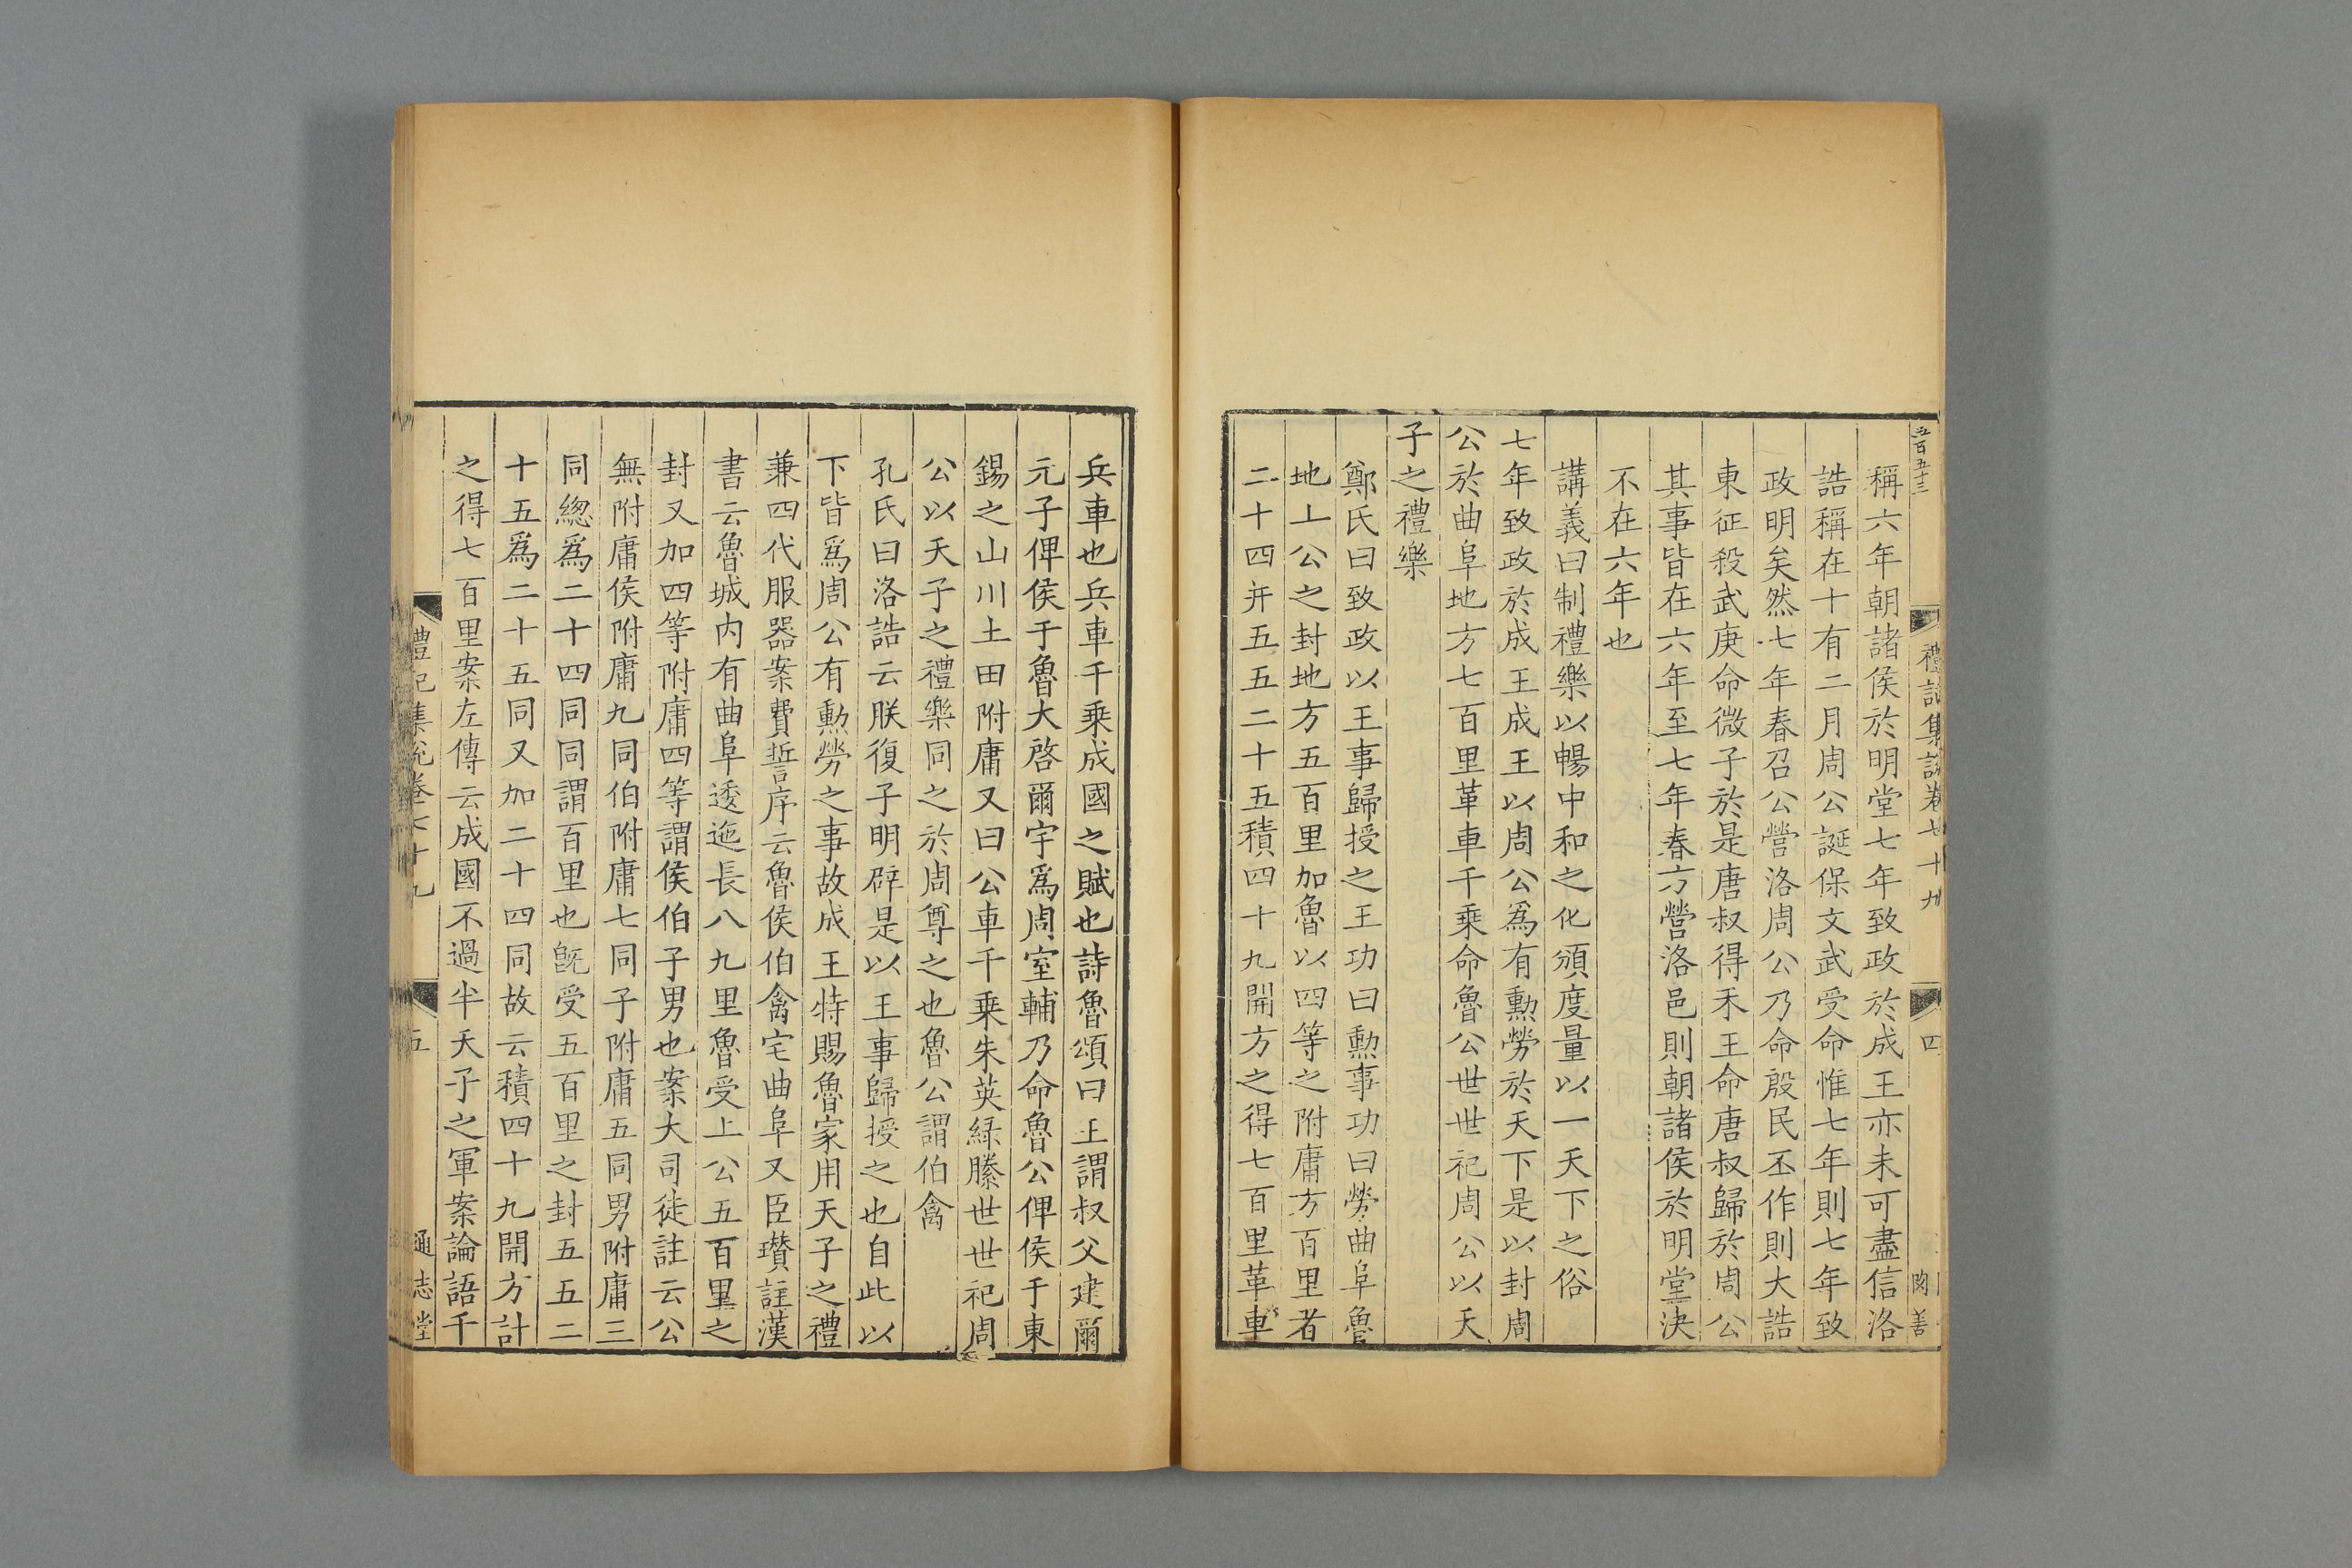 五百五十三
禮記集說卷七十九
四
陶善
稱六年朝諸侯於明堂七年致政於成王亦未可盡信洛
誥稱在十有二月周公誕保文武受命惟七年則七年致
政明矣然七年春召公營洛周公乃命殷民丕作則大誥
東征殺武庚命微子於是唐叔得禾王命唐叔歸於周公
其事皆在六年至七年春方營洛邑則朝諸侯於明堂決
不在六年也
講義曰制禮樂以暢中和之化頒度量以一天下之俗
七年致政於成王成王以周公爲有勲勞於天下是以封周
公於曲阜地方七百里革車千乗命魯公世世祀周公以天
子之禮樂
鄭氏曰致政以王事歸授之王功曰勲事功曰勞曲阜魯
地上公之封地方五百里加魯以四等之附庸方百里者
二十四并五五二十五積四十九開方之得七百里革車
兵車也兵車千乗成國之賦也詩魯頌曰王謂叔父建爾
元子俾侯于魯大啓爾宇爲周室輔乃命魯公俾侯于東
錫之山川土田附庸又曰公車千乗朱英緑縢世世祀周
公以天子之禮樂同之於周尊之也魯公謂伯禽
孔氏曰洛誥云朕復子明辟是以王事歸授之也自此以
下皆爲周公有勲勞之事故成王特賜魯家用天子之禮
兼四代服器案費誓序云魯侯伯禽宅曲阜又臣瓚註漢
書云魯城内有曲阜逶迤長八九里魯受上公五百里之
封又加四等附庸四等謂侯伯子男也案大司徒註云公
無附庸侯附庸九同伯附庸七同子附庸五同男附庸三
同緫爲二十四同同謂百里也旣受五百里之封五五二
十五爲二十五同又加二十四同故云積四十九開方計
之得七百里案左傳云成國不過半天子之軍案論語千
禮記集說卷七十九
五
通志堂